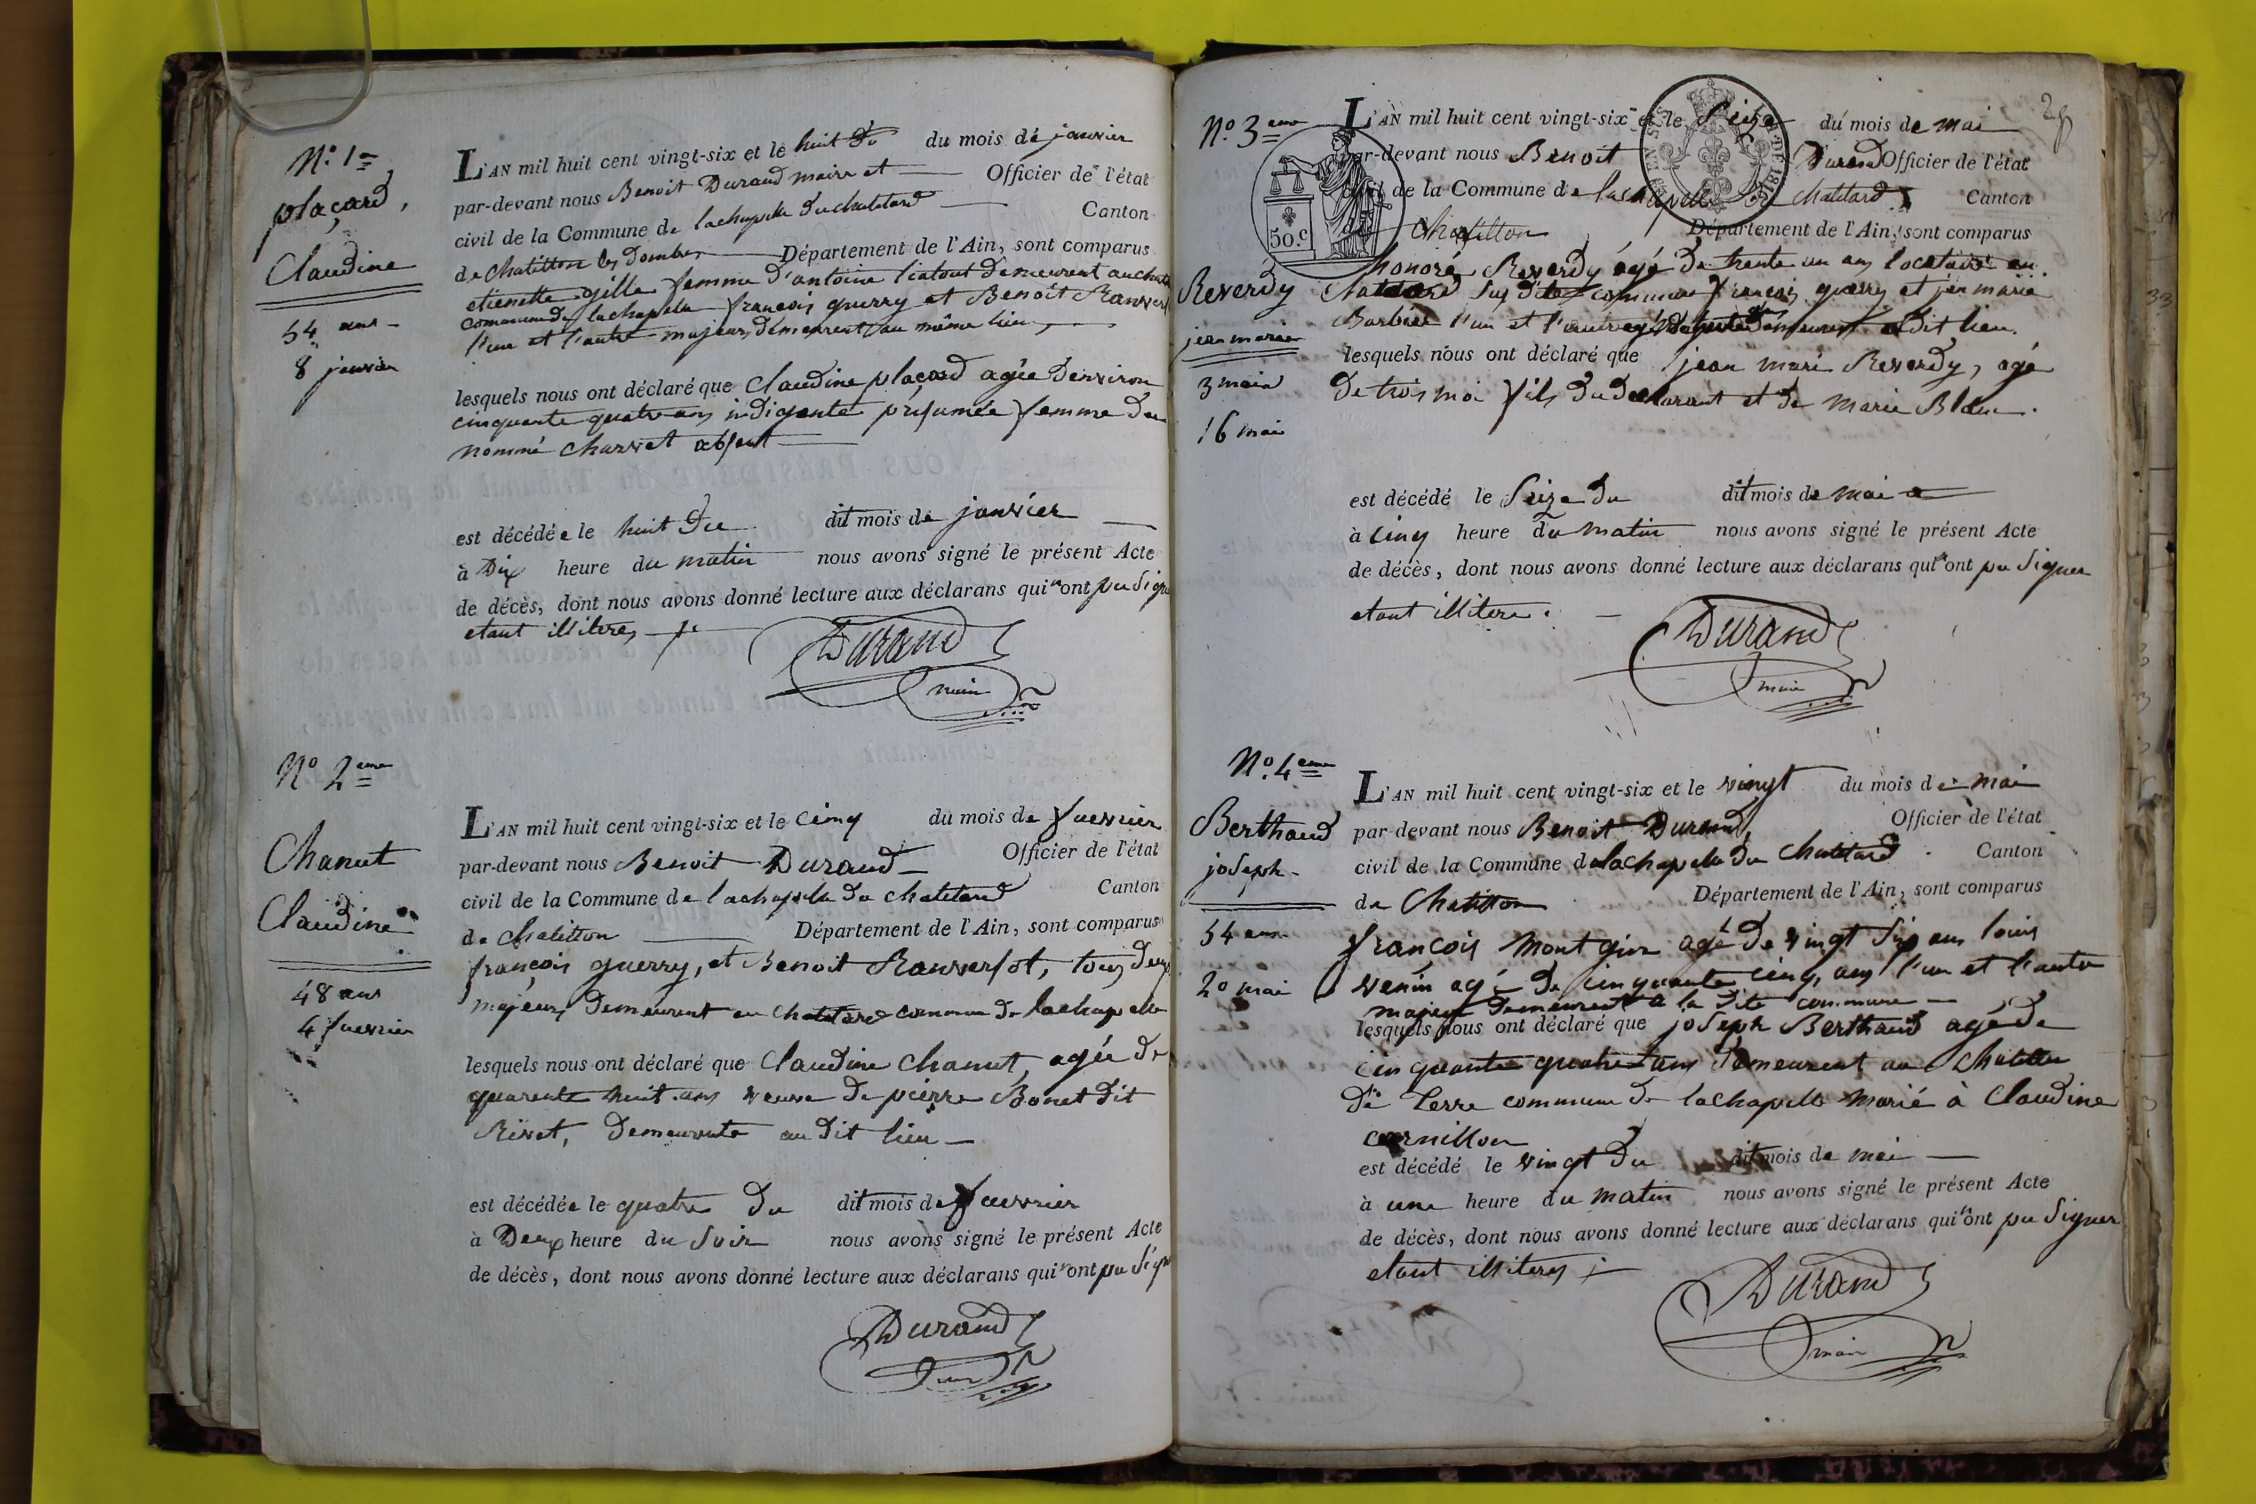 N.º 1er
plaçard,
Claudine
54 ans
8 janvier
L'AN mil huit cent vingt-six et le huit du du mois de janvier
par-devant nous Benoit Durand maire et Officier de l'état
civil de la Commune de lachapelle du chatelard Canton
de chatillon les Dombes Département de l'Ain, sont comparus
etienette gille femme d'antoine demeurent au
commune de lachapelle francois guerry et Benoit
l'un et l'autre majeurs, demeurent au même lieu,
lesquels nous ont déclaré que Claudine plaçard agée Denviron
cinquante quatre ans indigente présumée femme du
nommé charvet absent
est décédée le huit Du dit mois de janvier
à Dix heure du matin nous avons signé le présent Acte
de décès, dont nous avons donné lecture aux déclarans qui n'ont pu Signer
etant illiteres
Durand
maire
Nº 2eme
Chanut
Claudine
48 ans
4 fuevrier
L'AN mil huit cent vingt-six et le cinq du mois de fuevrier
par-devant nous Benoit Durand Officier de l'état
civil de la Commune de lachapelle du chatelard Canton
de chatillon Département de l'Ain, sont comparus
françois guerry, et Benoit Ranversot, tous deux
majeurs Demeurent au chatelard commune de lachapelle
lesquels nous ont déclaré que Claudine Chanut, agée de
quarente huit ans veuve de pierre Bonet dit
Rivet, Demeurente au Dit lieu
est décédée le quatre du dit mois de fuevrier
à Deux heure du Soir nous avons signé le présent Acte
de décès, dont nous avons donné lecture aux déclarans qui n'ont pu Signer
Durand
N.º 3eme
Reverdy
jean marie
3 mois
16 mai
28
50.c
L'AN mil huit cent vingt-six et le Seize du mois de mai
par-devant nous Benoit Durand Officier de l'état
civil de la Commune de lachapelle du chatelard Canton
de Chatillon Département de l'Ain, sont comparus
honoré Reverdy agé de trente un ans locataire au
Chatelard Sus dite commune francois guerry et jean marie
Barbier l'un et l'autre demeurent au Dit lieu.
lesquels nous ont déclaré que jean marie Reverdy, agé
de trois moi fils du declarant et de marie Blanc.
est décédé le Seize du dit mois de mai
à cinq heure du matin nous avons signé le présent Acte
de décès, dont nous avons donné lecture aux déclarans qui n'ont pu Signer
etant illitere.
Durand
maire
N.º 4eme
Berthaud
joseph
54 ans
20 mai
L'AN mil huit cent vingt-six et le vingt du mois de mai
par devant nous Benoit Durand, Officier de l'état
civil de la Commune de lachapelle du Chatelard Canton
de Chatillon Département de l'Ain, sont comparus
françois agé de vingt Six ans louis
venin agé de cinquante cinq ans l'un et l'autre
majeur demeurent a la dite commune
lesquels nous ont déclaré que joseph Berthaud agé de
cinquante quatre ans demeurent au
De Terre commune de lachapelle marié à Claudine
cornillon
est décédé le vingt du dit mois de mai
à une heure du matin nous avons signé le présent Acte
de décès, dont nous avons donné lecture aux déclarans qui n'ont pu Signer
etant illiteres
Durand
maire